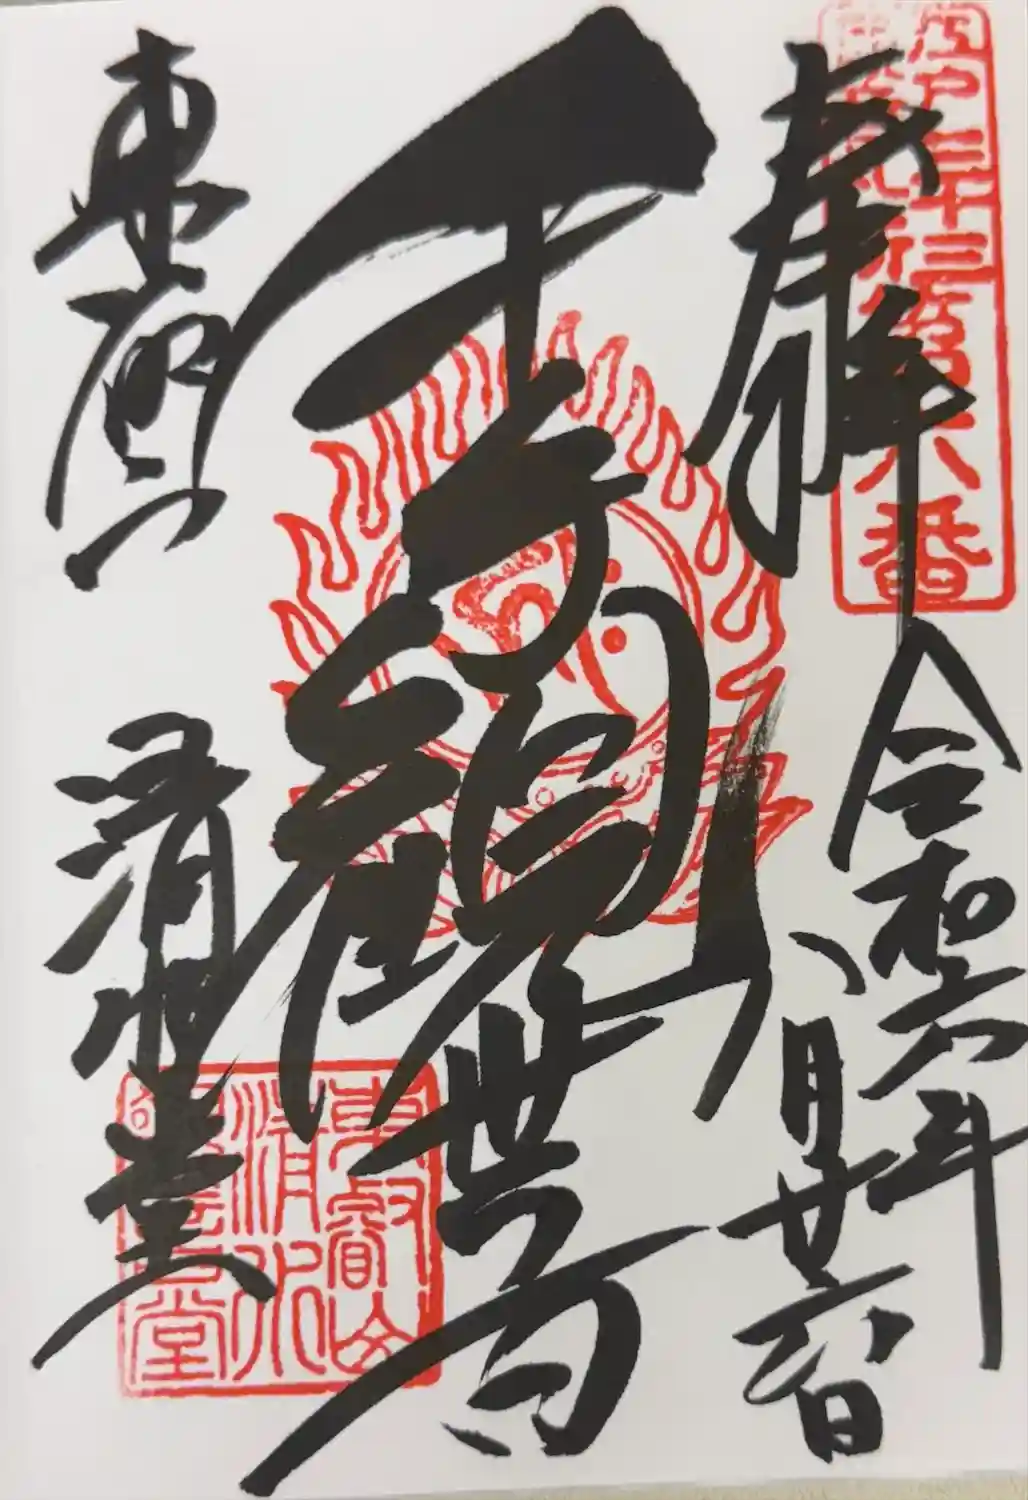 奉拝
令和六年
八月廿六日
千手観世音
東叡山
清水堂
江戸三十三
六番
東叡山
清水
観音堂